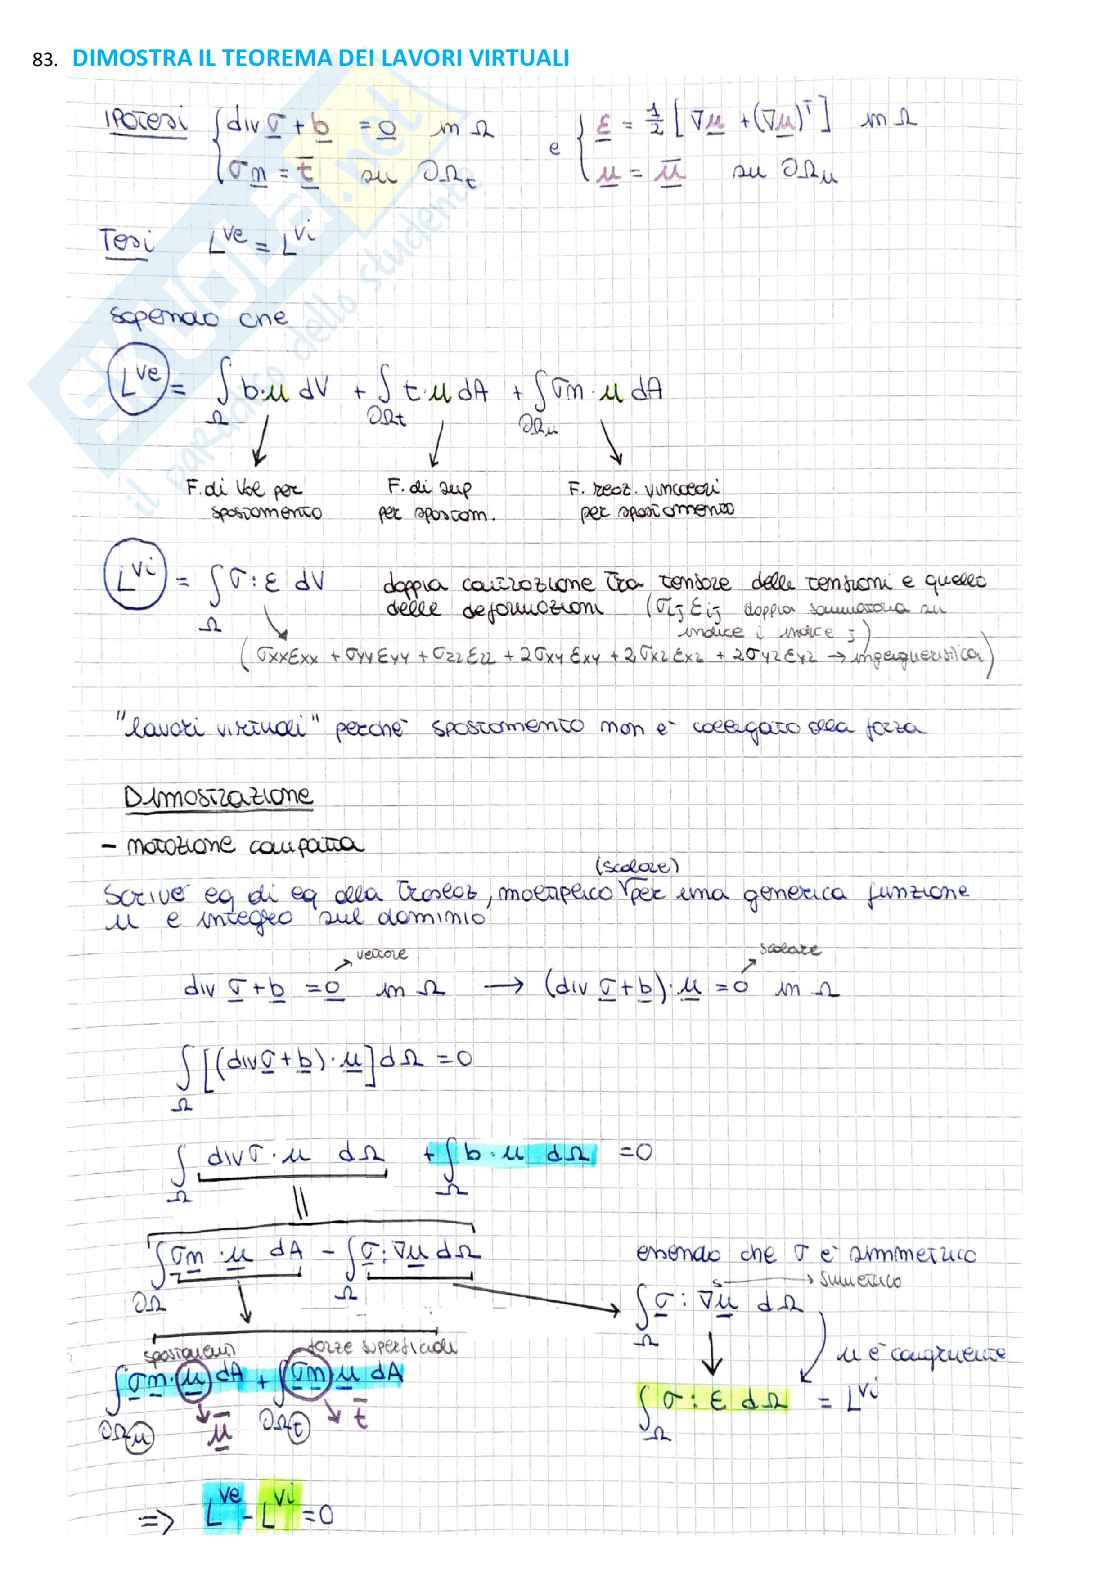 83. DIMOSTRA IL TEOREMA DEI LAVORI VIRTUALI
IPOTESI { div σ + b = 0 in Ω e { ε = 1/2 [∇u + (∇u)ᵀ] in Ω
σn = t̄ su ∂Ωt u = ū su ∂Ωu
Tesi Lᵛᵉ = Lᵛⁱ
sapendo che
Lᵛᵉ = ∫Ω b·u dV + ∫∂Ωt t·u dA + ∫∂Ωu σn·u dA
F. di Vol per spostamento
F. di sup per spostam.
F. reaz. vincolari per spostamento
Lᵛⁱ = ∫Ω σ:ε dV doppia contrazione tra tensore delle tensioni e quello
delle deformazioni (σij εij doppia sommatoria su
indice i indice j)
(σxxεxx + σyyεyy + σzzεzz + 2σxyεxy + 2σxzεxz + 2σyzεyz → ingegneristica)
"lavori virtuali" perché spostamento non è collegato alla forza
Dimostrazione
- notazione compatta
(scalare)
Scrive eq di eq alla traslaz, moltiplico per una generica funzione
u e integro sul dominio
vettore scalare
div σ + b = 0 in Ω → (div σ + b)·u = 0 in Ω
∫Ω [(div σ + b)·u] dΩ = 0
∫Ω div σ·u dΩ + ∫Ω b·u dΩ = 0
∫∂Ω σn·u dA - ∫Ω σ:∇u dΩ essendo che σ è simmetrico
∫Ω σ:∇ˢu dΩ → simmetrico
spostamenti forze superficiali
u è congruente
∫∂Ωu σn·u dA + ∫∂Ωt σn u dA
ū t̄
∫Ω σ:ε dΩ = Lᵛⁱ
=> Lᵛᵉ - Lᵛⁱ = 0
SKUOLA.net
il paradiso dello studente